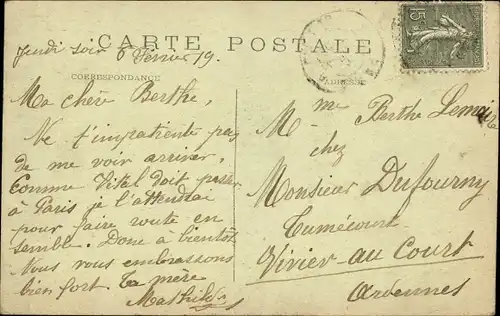 Jeudi soir 6 Février 19.
CARTE POSTALE
CORRESPONDANCE
ADRESSE
15
Ma chère Berthe,
Ne t'impatiente pas
de me voir arriver,
Comme Vital doit passer
à Paris je l'attendrai
pour faire route en
semble. Donc à bientôt
Nous vous embrassons
bien fort. Ta mère
Mathilde
Mme Berthe Lemaire
chez
Monsieur Dufourny
Tumécourt
Vivier-au Court
Ardennes